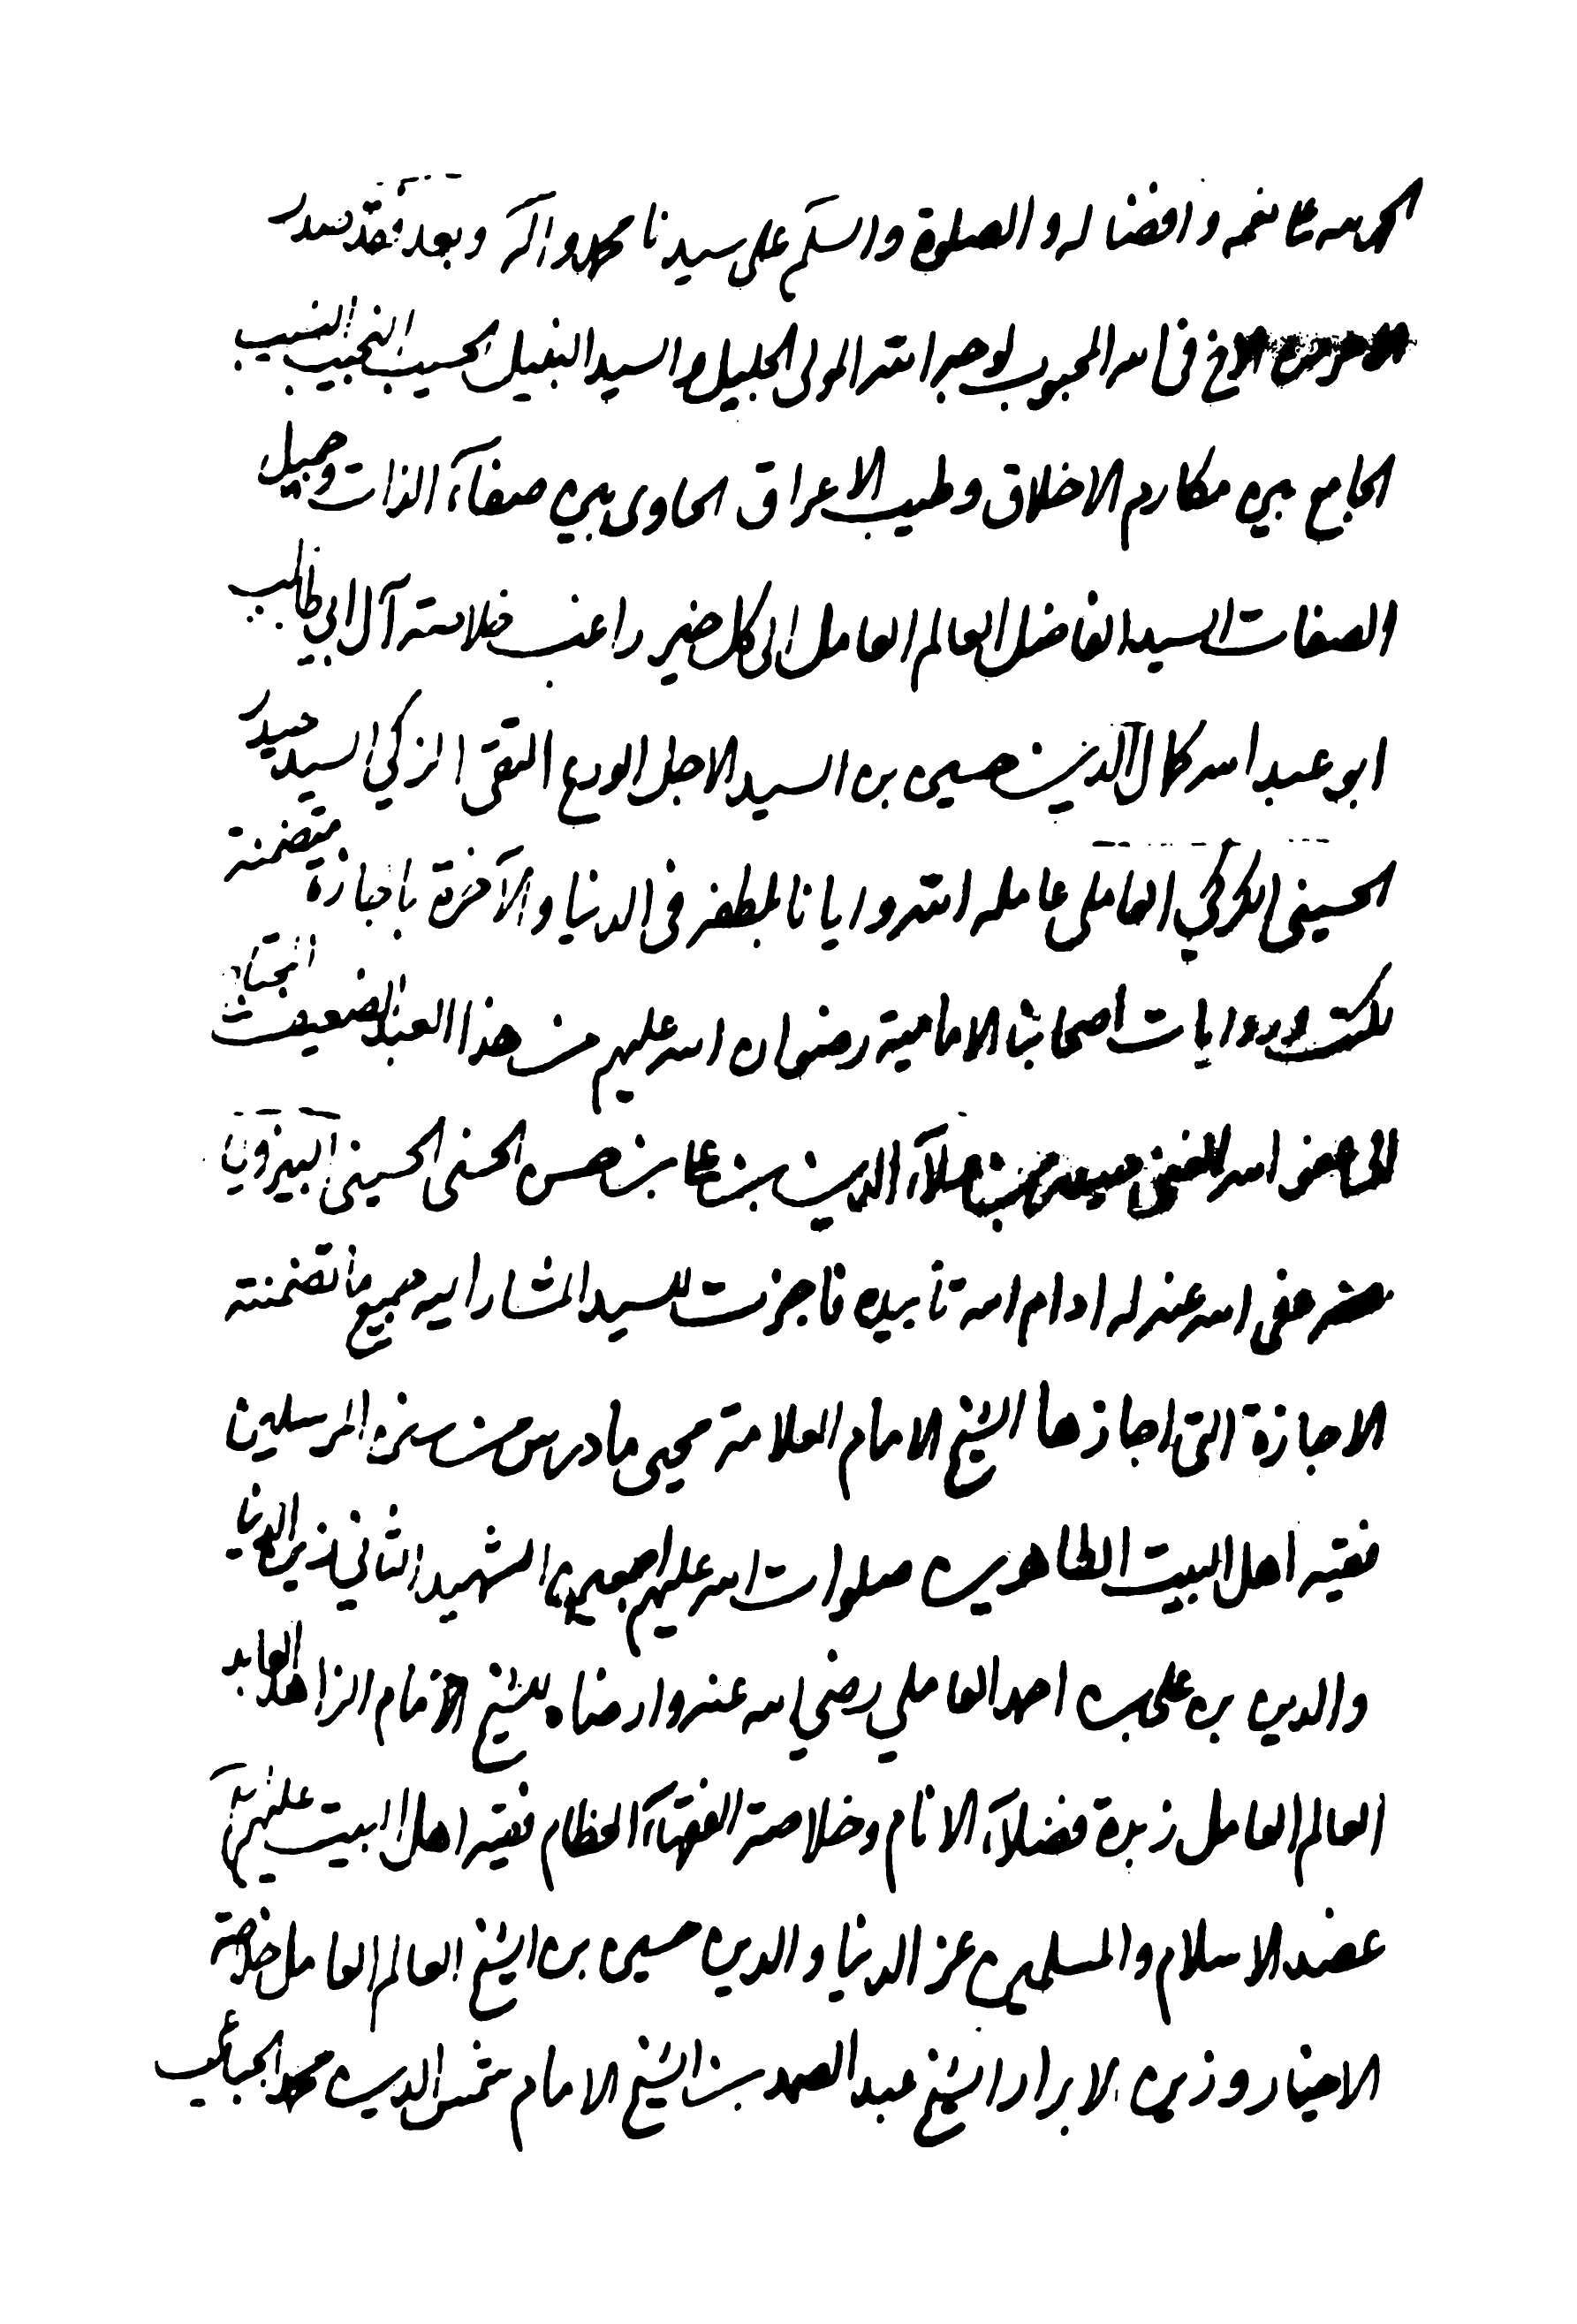 الحمد لله على نعمه وافضاله والصلوة والسلم على سيدنا محمد وآله وبعد فقد
الاخ في الله المحبوب لوجه الله المولى الجليل والسيد النبيل الحسيب النجيب النسيب
الجامع بين مكارم الاخلاق وطيب الاعراق الحاوى بين صفاء الذات وجميل
الصفات السيد الفاضل العالم العامل الى كل خير راغب خلاصة آل ابي طالب
ابو عبد الله كمال الدين حسين بن السيد الاجل الورع التقى الزكي السيد حيدر
الحسينى الكركي العاملى عامله الله وايانا بلطفه فى الدنيا والآخرة باجازة متضمنة
لكتب وروايات اصحابنا الامامية رضوان الله عليهم من هذا العبد الضعيف
الى الله الغنى حسين بن علاء الدين بن على بن حسن الحسنى الحسينى
عفى الله عنه له ادام الله تأييده فاجزت للسيد المشار اليه جميع ما تضمنته
الاجازة التى اجازها الشيخ الامام العلامة محيى ما درس من سنن المرسلين
فقيه اهل البيت الطاهرين صلوات الله عليهم اجمعين الشهيد الثاني زين الدنيا
والدين بن على بن احمد العاملي رضي الله عنه وارضاه للشيخ الامام الزاهد العابد
العالم العامل زبدة فضلاء الانام وخلاصة الفقهاء العظام فقيه اهل البيت عليهم
عضد الاسلام والمسلمين عز الدنيا والدين حسين بن الشيخ العالم العامل خلاصة
الاخيار وزين الابرار الشيخ عبد الصمد بن الشيخ الامام شمس الدين محمد الجباعي